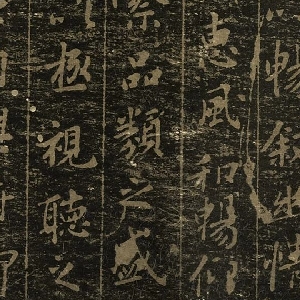 暢敘幽情
惠風和暢仰
察品類之盛
極視聽之